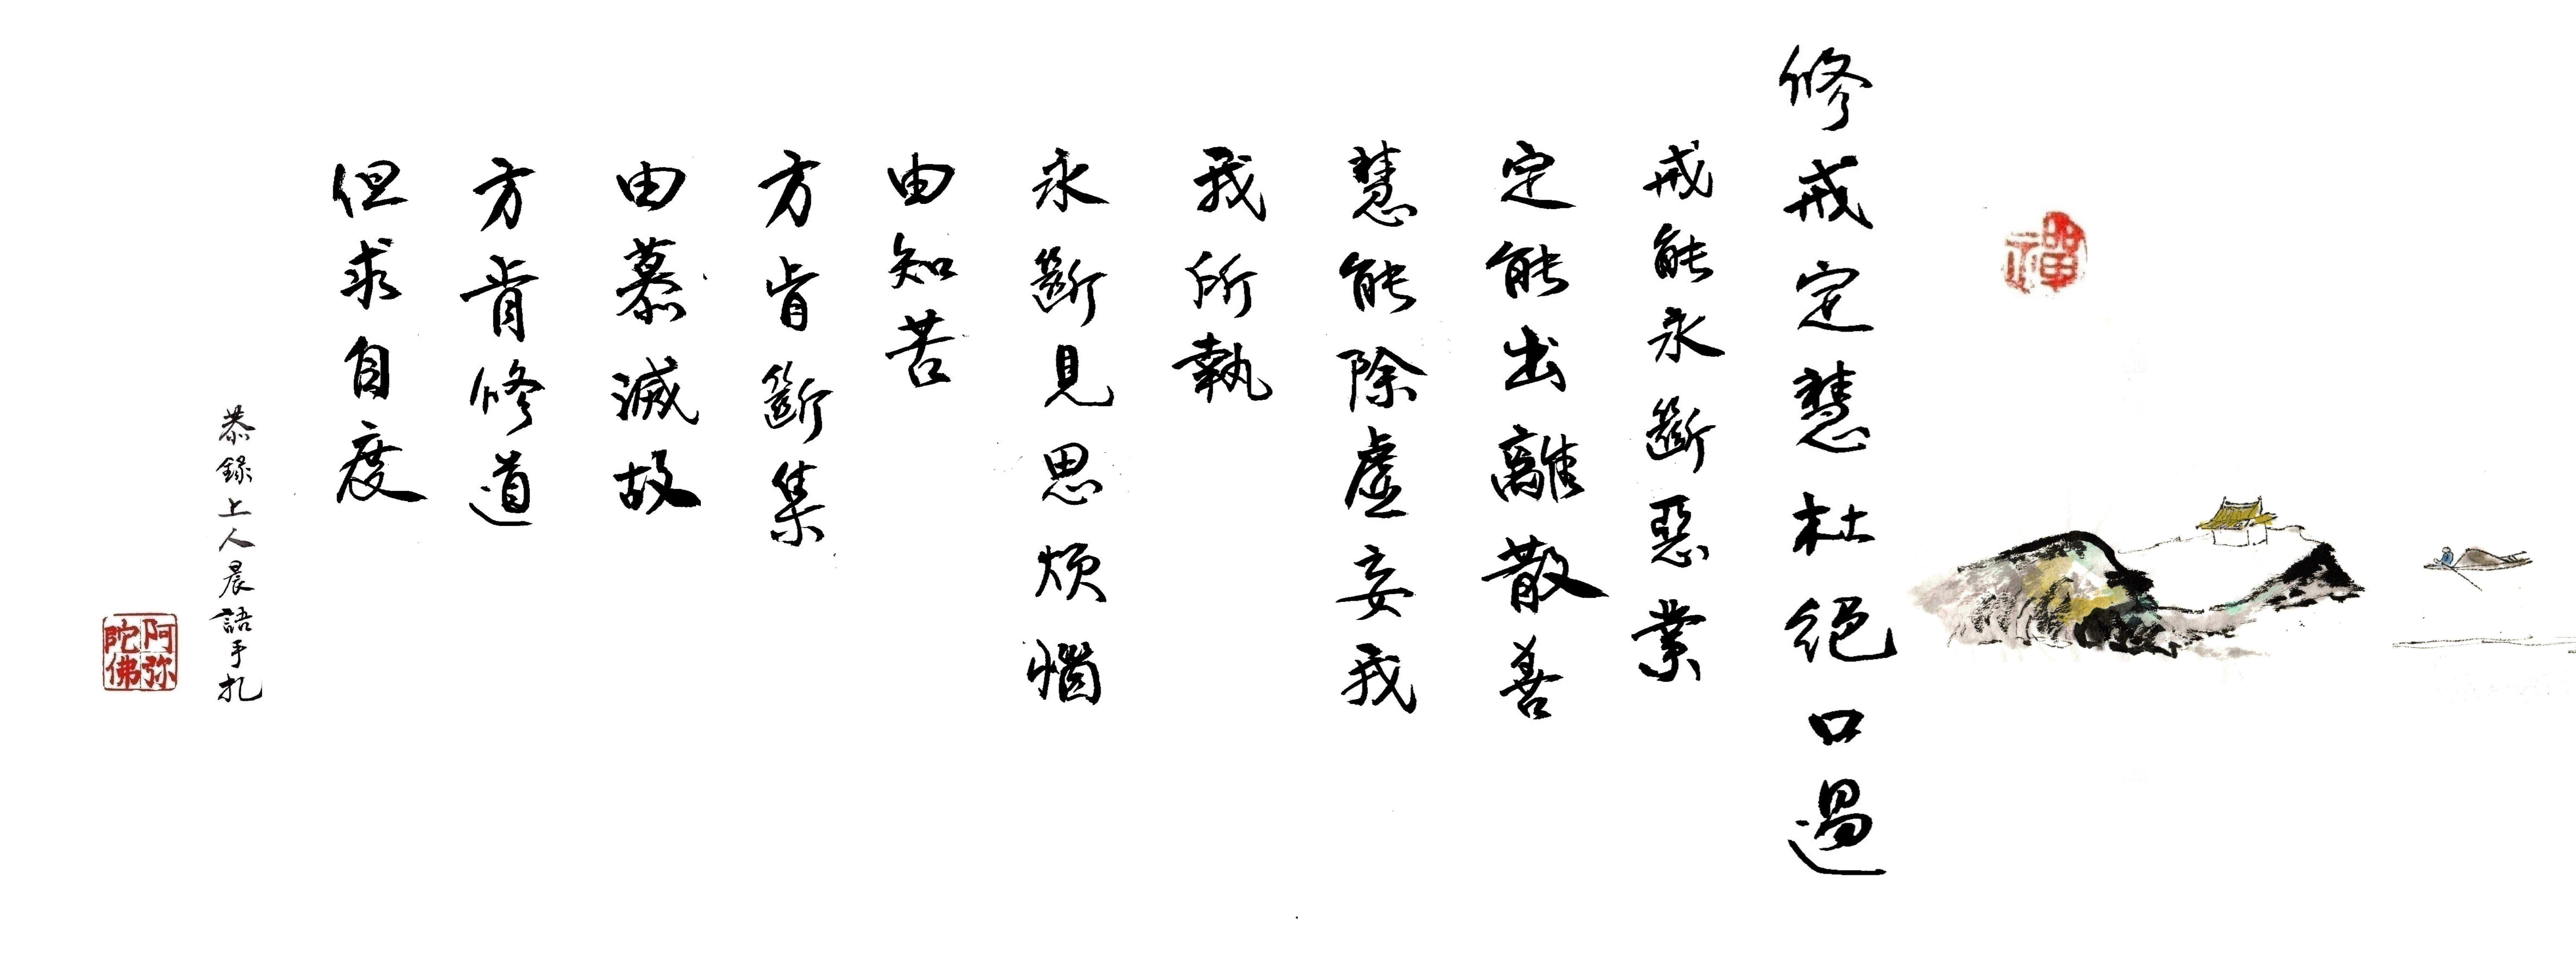 禪
修戒定慧杜絕口過
戒能永斷惡業
定能出離散善
慧能除虛妄我
我所執
永斷見思煩惱
由知苦
方肯斷集
由慕滅故
方肯修道
但求自度
恭錄上人晨語手扎
阿弥
陀佛